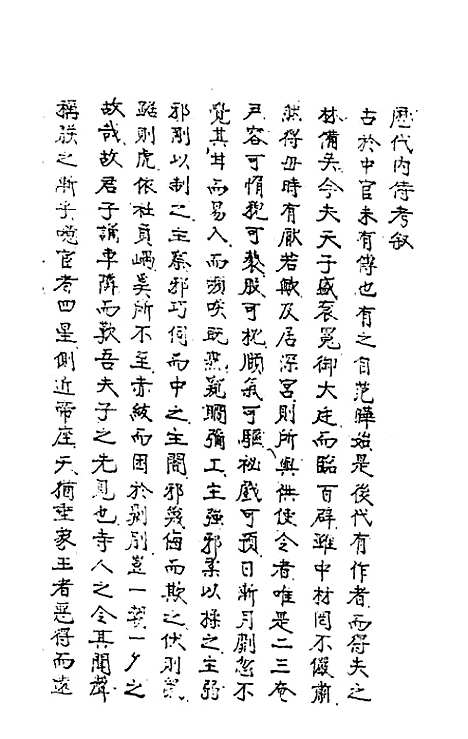 歷代內侍考敘
古於中官未有傳也有之自范曄始是後代有作者而得失之
林備矣今夫天子盛袞冕御大廷而臨百辟雖中材罔不儼肅
然得毋時有厭若歟及居深宮則所與供使令者唯是二三奄
尹容可惰貌可褻股可枕頤氣可驅祕戲可預日漸月劘忽不
覺其甘而易入而嚬咲既熟窺瞷彌工主強邪柔以揉之主弱
邪剛以制之主察邪巧伺而中之主闇邪幾侮而欺之伏則鼠
藉則虎依社負嵎莫所不至赤紱而困於劓刖豈一朝一夕之
故哉故君子誦車隣而歎吾夫子之先見也寺人之令其聞聲
稱朕之漸乎噫宦者四星側近帝座天猶垂象王者惡得而遠